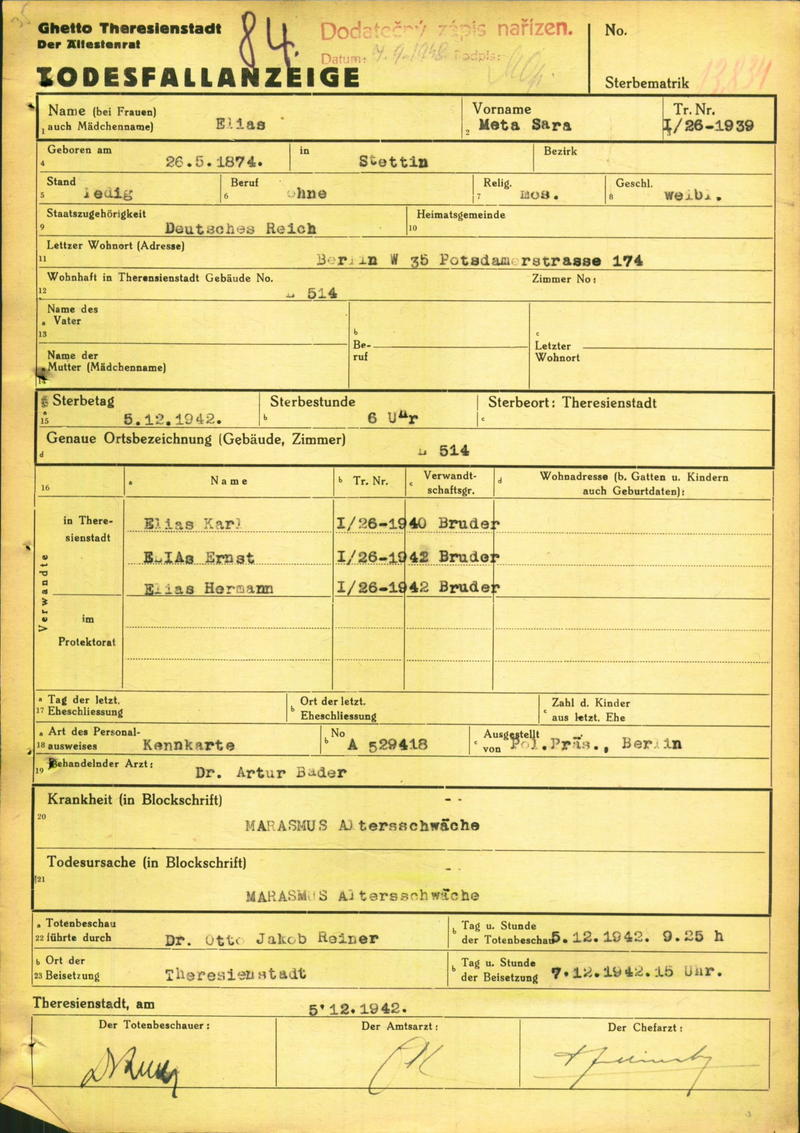 Ghetto Theresienstadt
Der Ältestenrat
84.
Dodatečný zápis nařízen.
Datum: 7.9.1948 Podpis:
TODESFALLANZEIGE
No.
Sterbematrik
Name (bei Frauen)
1 auch Mädchenname) Elias
Vorname
2 Meta Sara
Tr. Nr.
I/26-1939
Geboren am
4 26.5.1874.
in Stettin
Bezirk
Stand
5 ledig
Beruf
6 ohne
Relig.
7 mos.
Geschl.
8 weibl.
Staatszugehörigkeit
9 Deutsches Reich
Heimatsgemeinde
10
Lettzer Wohnort (Adresse)
11 Berlin W 35 Potsdamerstrasse 174
Wohnhaft in Therensienstadt Gebäude No.
12 L 514
Zimmer No:
Name des
a Vater
13
Name der
Mutter (Mädchenname)
14
b
Be-
ruf
c
Letzter
Wohnort
a Sterbetag
15 5.12.1942.
Sterbestunde
b 6 Uhr
Sterbeort: Theresienstadt
c
Genaue Ortsbezeichnung (Gebäude, Zimmer)
d L 514
16
a Name
b Tr. Nr.
c Verwandt-
schaftsgr.
d Wohnadresse (b. Gatten u. Kindern
auch Geburtdaten):
Verwandte
in There-
sienstadt
Elias Karl I/26-1940 Bruder
ELIAs Ernst I/26-1942 Bruder
Elias Hermann I/26-1942 Bruder
im
Protektorat
a Tag der letzt.
17 Eheschliessung
b Ort der letzt.
Eheschliessung
c Zahl d. Kinder
aus letzt. Ehe
a Art des Personal-
18 ausweises Kennkarte
b No
A 529418
c Ausgestellt
von Pol.Präs., Berlin
19 Behandelnder Arzt:
Dr. Artur Bader
Krankheit (in Blockschrift)
20
MARASMUS Altersschwäche
Todesursache (in Blockschrift)
21
MARASMUS Altersschwäche
a Totenbeschau
22 führte durch Dr. Otto Jakob Reiner
b Tag u. Stunde
der Totenbeschau 5.12.1942. 9.25 h
b Ort der
23 Beisetzung Theresienstadt
b Tag u. Stunde
der Beisetzung 7.12.1942.15 Uhr.
Theresienstadt, am 5.12.1942.
Der Totenbeschauer:
Der Amtsarzt:
Der Chefarzt: